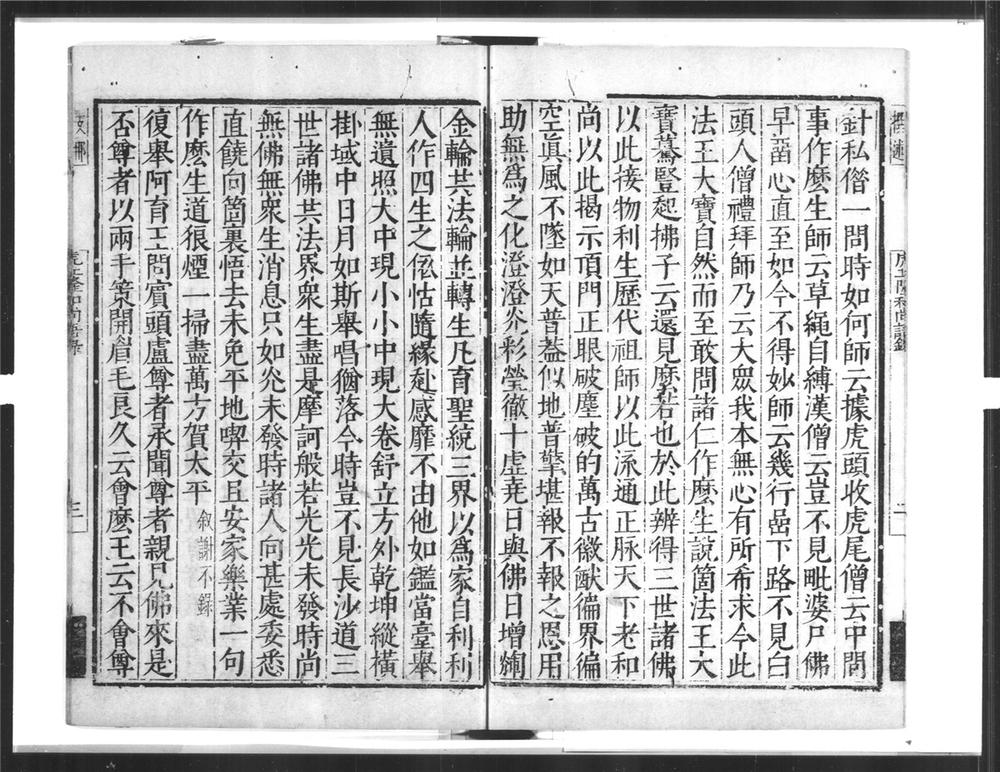 針私僣一問時如何師云據虎頭收虎尾僧云中間
事作麼生師云草繩自縛漢僧云豈不見毗婆尸佛
早留心直至如今不得妙師云幾行嵒下路不見白
頭人僧禮拜師乃云大眾我本無心有所希求今此
法王大寶自然而至敢問諸仁作麼生說箇法王大
寶驀豎起拂子云還見麼若也於此辨得三世諸佛
以此接物利生歷代祖師以此泳通正脉天下老和
尚以此揭示頂門正眼破塵破的萬古徽猷徧界徧
空真風不墜如天普葢似地普擎堪報不報之恩用
助無為之化澄澄炎彩瑩徹十虛堯日與佛日增
金輪共法輪並轉生凡育聖統三界以為家自利利
人作四生之依怙隨緣赴感靡不由他如鑑當臺舉
無遺照大中現小小中現大卷舒立方外乾坤縱橫
掛域中日月如斯舉唱猶落今時豈不見長沙道三
世諸佛共法界衆生盡是摩訶般若光光未發時尚
無佛無衆生消息只如炎未發時諸人向甚處委悉
直饒向箇裏悟去未免平地喫交且安家樂業一句
作麼生道狼煙一掃盡萬方賀太平 叙謝不錄
復舉阿育王問賓頭盧尊者承聞尊者親見佛來是
否尊者以兩手策開眉毛良久云會麼王云不會尊